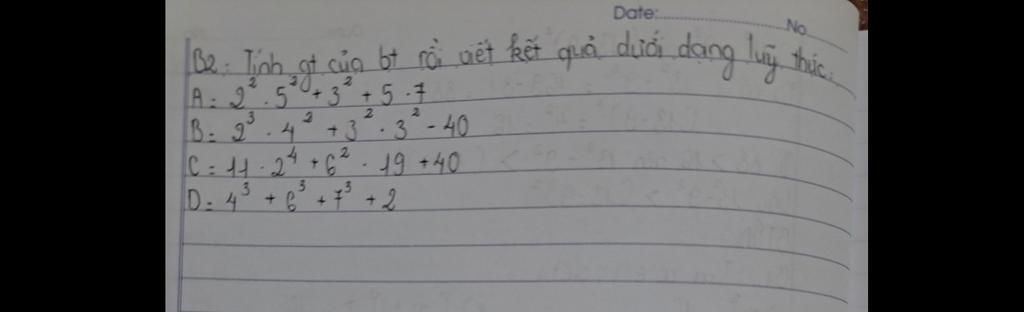 Date: No
B2: Tính gt của bt rồi viết kết quả dưới dạng luỹ thức.
A = 2² . 5² + 3² + 5 . 7
B = 2³ . 4² + 3² . 3² - 40
C = 11 . 2⁴ + 6² . 19 + 40
D = 4³ + 6³ + 7³ + 2